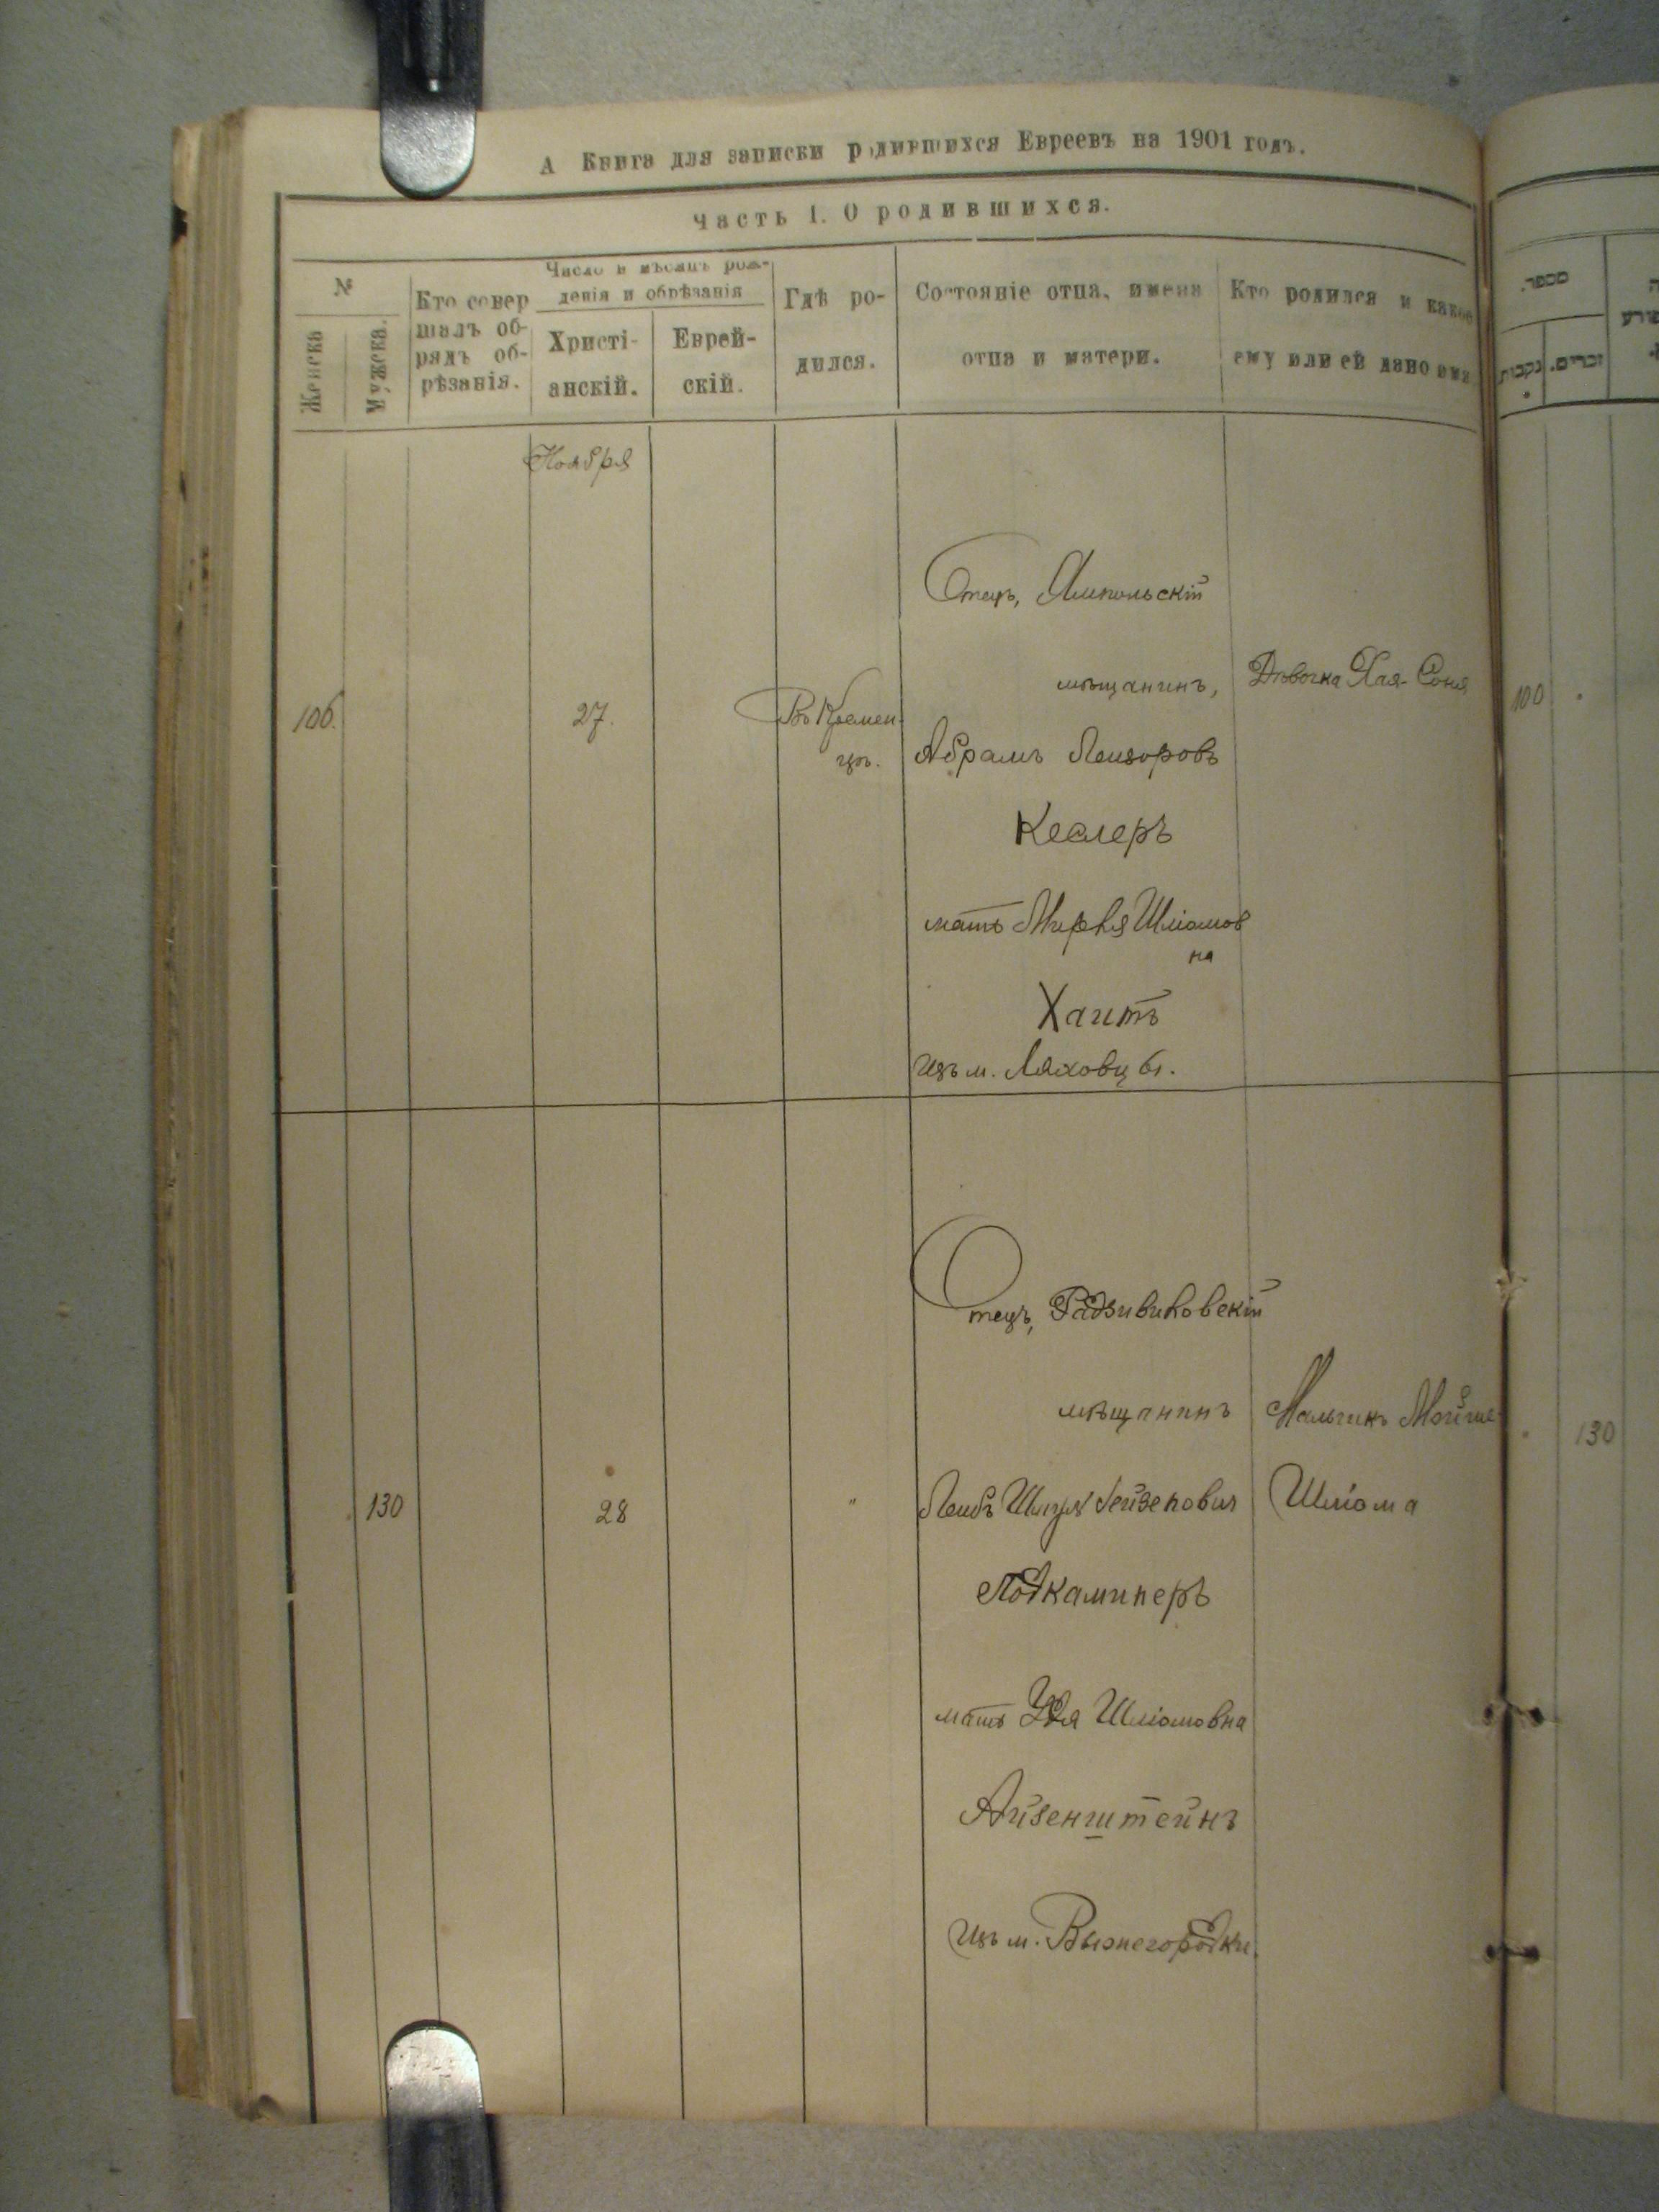 А Книга для записки родившихся Евреевъ на 1901 годъ.
Часть I. О родившихся.
№
Женска
Мужска.
Кто совер
шалъ об-
рядъ об-
рѣзанія.
Число и мѣсяцъ рож-
денія и обрѣзанія
Христі-
анскій.
Еврей-
скій.
Гдѣ ро-
дился.
Состояніе отца, имена
отца и матери.
Кто родился и какое
ему или ей дано имя
Ноября
106.
27.
Въ Кремен-
цѣ.
Отецъ, Ямпольскій
мѣщанинъ,
Абрамъ Лейзоровъ
Кеслеръ
мать Мирля Шліомов
на
Хаитъ
Изъ м. Ляховцы.
Дѣвочка Хая-Соня
130
28
"
Отецъ, Радзивиловскій
мѣщанинъ
Лейбъ
Подкаминеръ
мать Удя Шліомовна
Айзенштейнъ
Изъ м. Вышегородки.
Мальчикъ Мойше-
Шліома
מספר.
נקבות
זכרים.
100
130